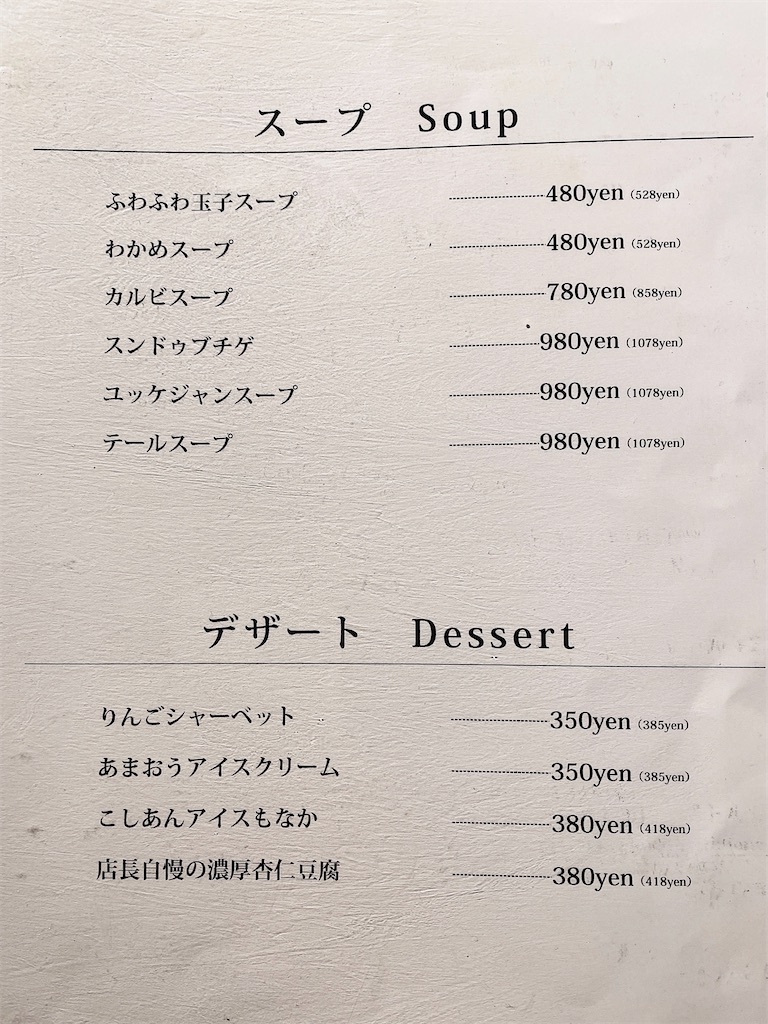 スープ Soup
ふわふわ玉子スープ ---------- 480yen (528yen)
わかめスープ ---------- 480yen (528yen)
カルビスープ ---------- 780yen (858yen)
スンドゥブチゲ ---------- 980yen (1078yen)
ユッケジャンスープ ---------- 980yen (1078yen)
テールスープ ---------- 980yen (1078yen)
デザート Dessert
りんごシャーベット ---------- 350yen (385yen)
あまおうアイスクリーム ---------- 350yen (385yen)
こしあんアイスもなか ---------- 380yen (418yen)
店長自慢の濃厚杏仁豆腐 ---------- 380yen (418yen)